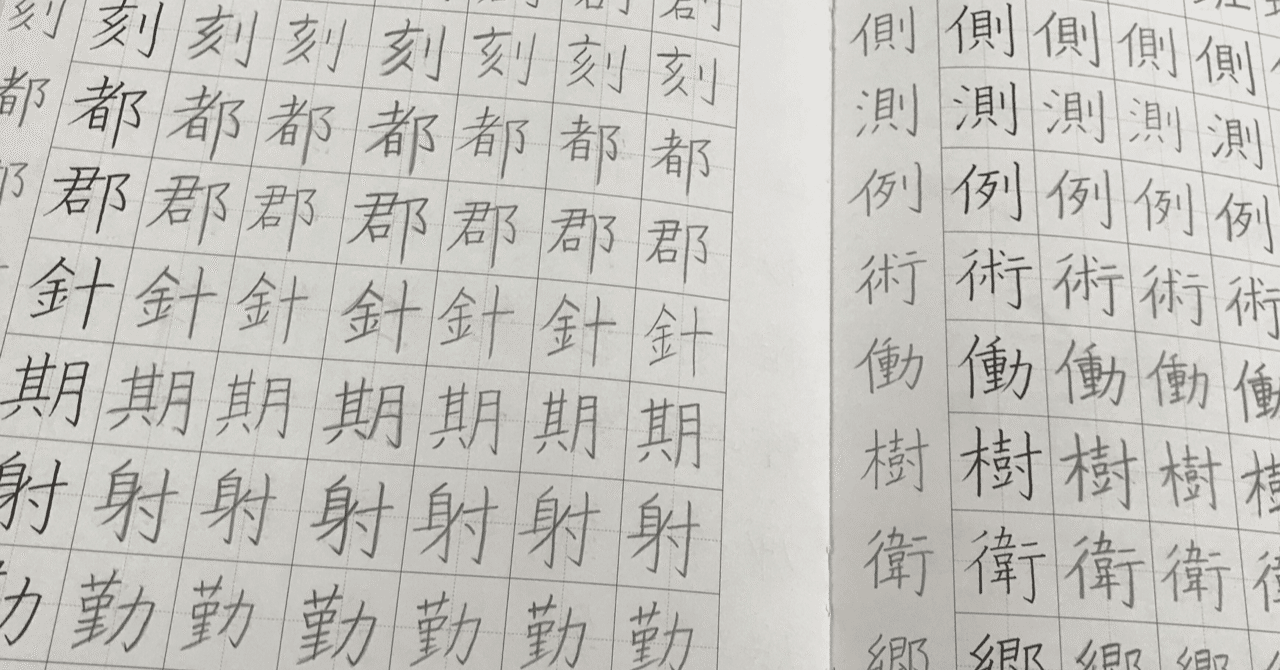 刻刻刻刻刻刻刻刻
都都都都都都都都
郡郡郡郡郡郡郡
針針針針針針針
期期期期期期期
射射射射射射射
勤勤勤勤勤勤
側側側側側
測測測測測
例例例例例
術術術術術
働働働働働
樹樹樹樹
衛衛衛衛
郷郷郷